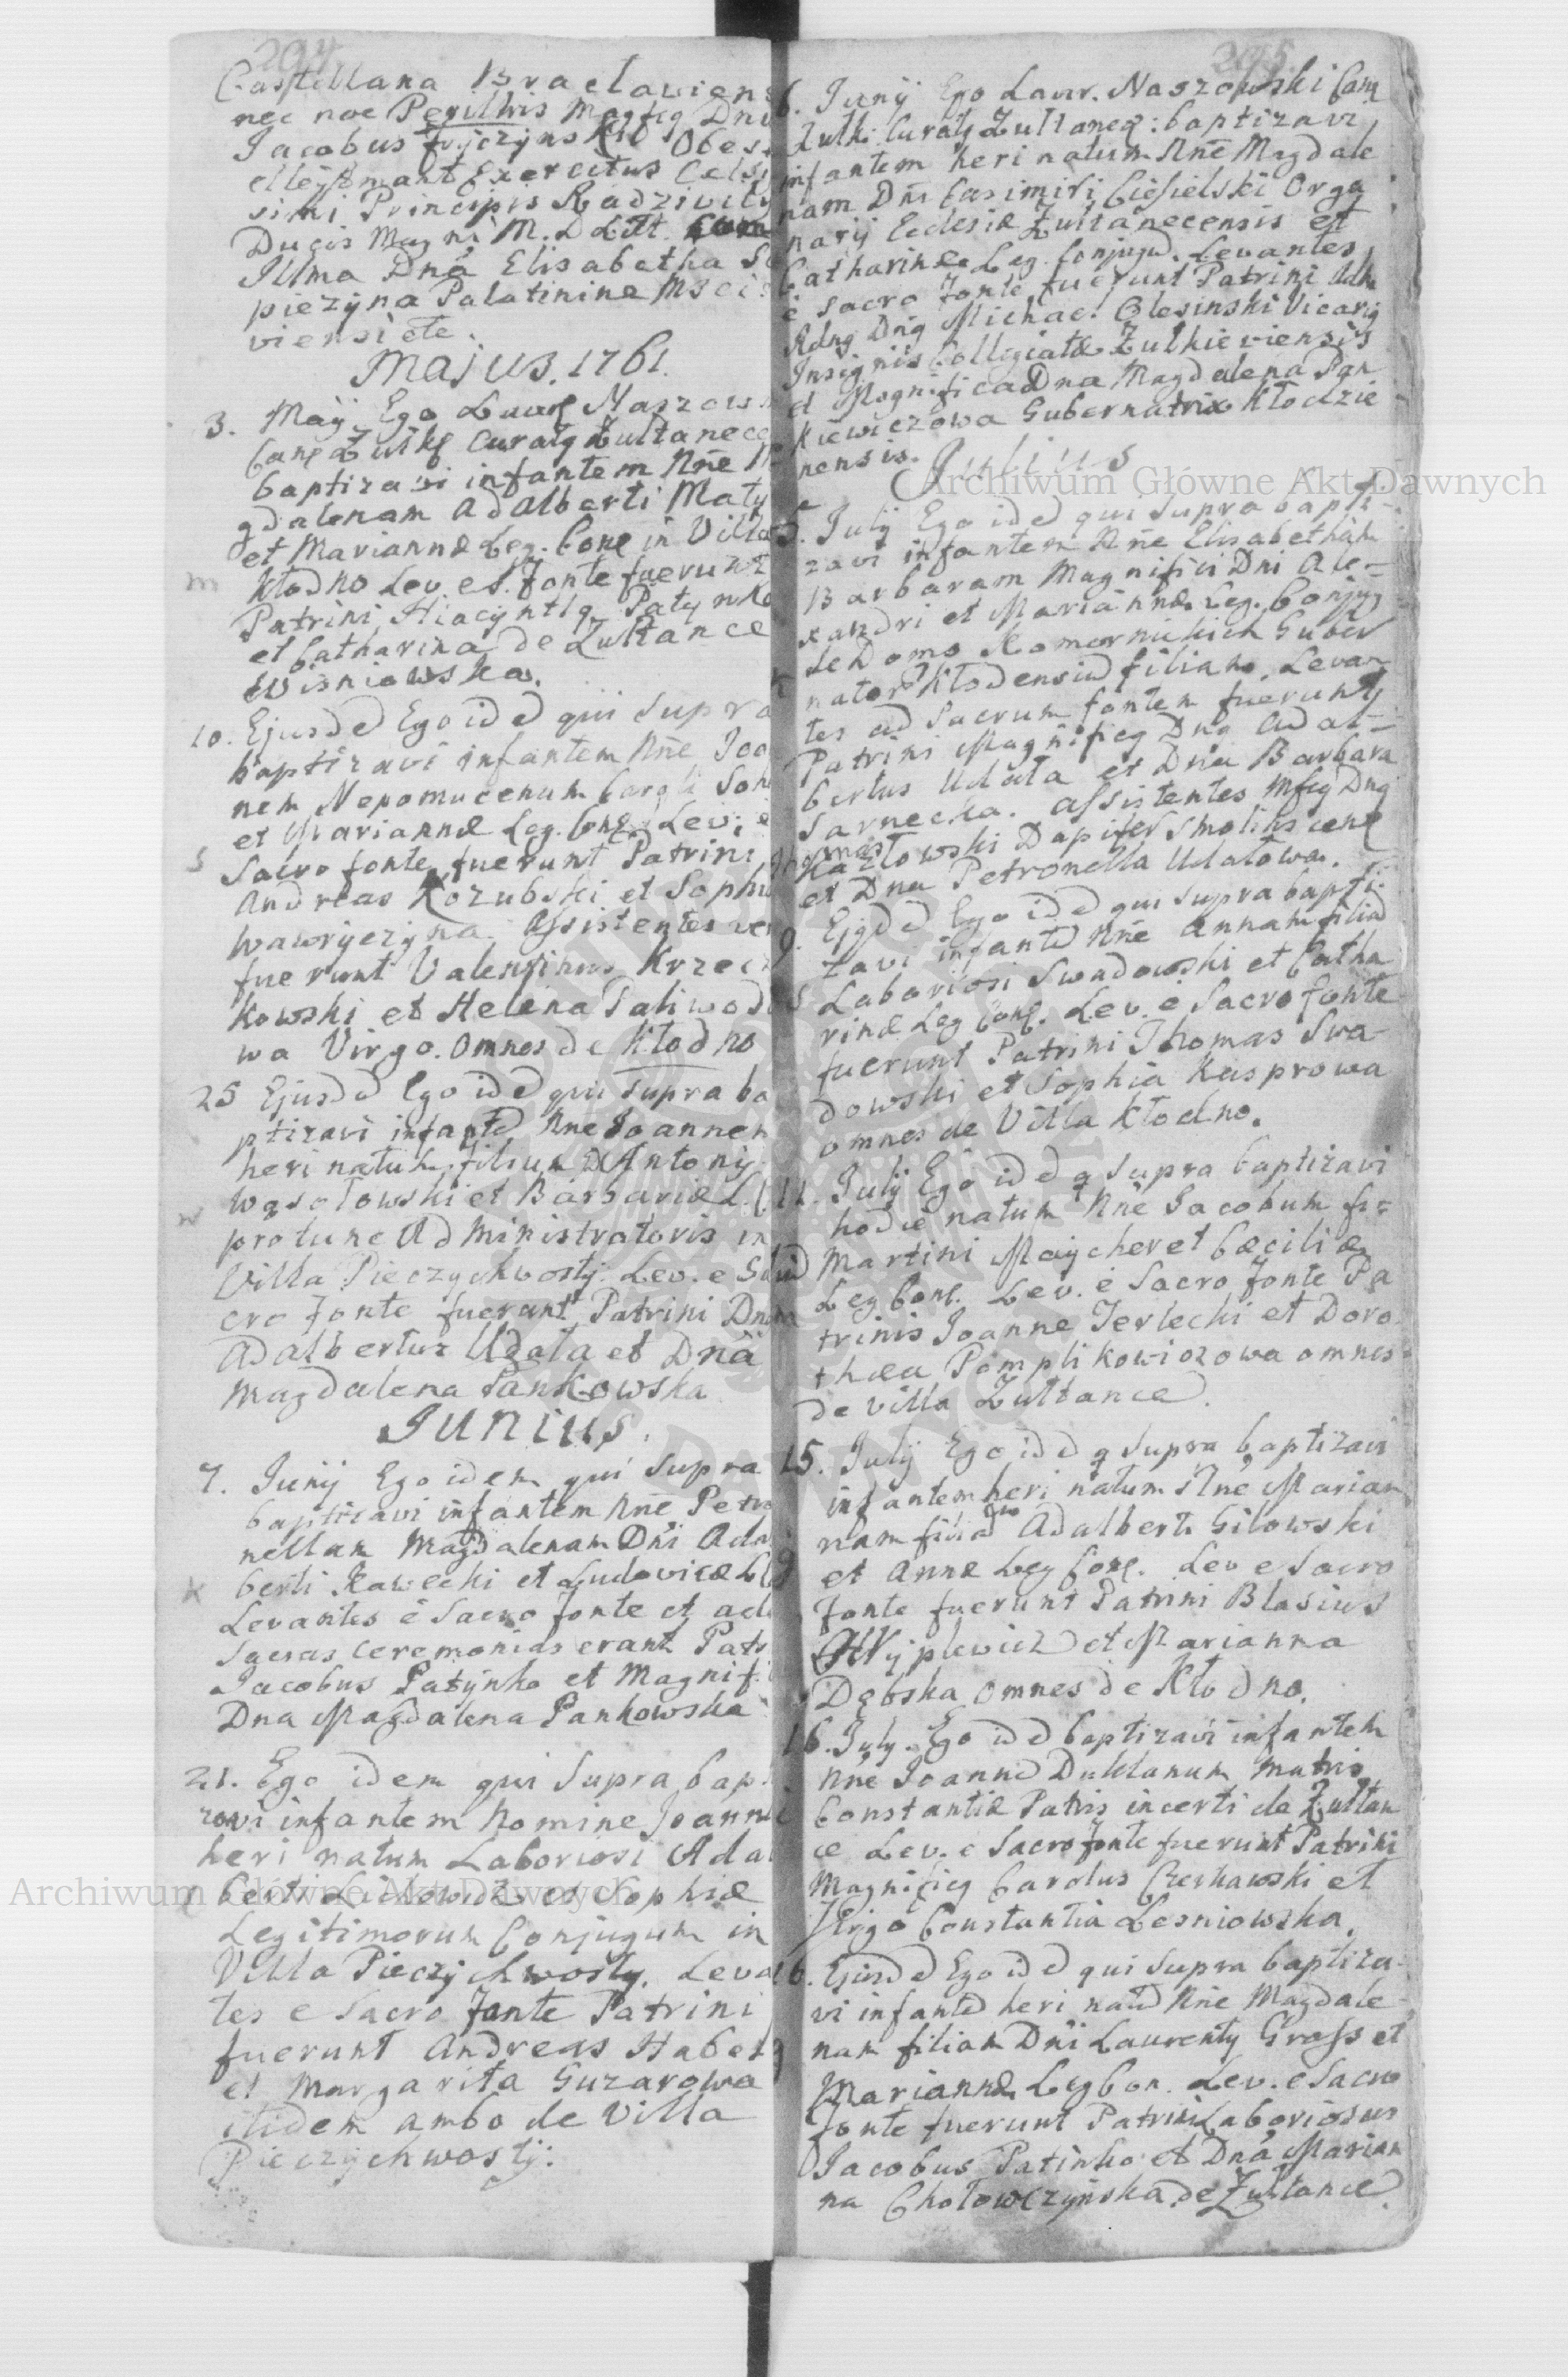 294
Castellana Braclaviens
nec noe Perillris Magfcq Dnu
Jacobus Obes
elleÿtmant Exercitus Celsi
simi Principis Radzivily
Ducis Magni M. D Litt.
Illma Dna Elisabetha Sa
piezyna Palatinina Msci
viensi ete.
Majus. 1761.
3. Maÿ Ego Laur Naszows
Canę Żułkę Curatg Żułtanece
baptizavi infantem Nne M
gdalenam Adalberti Maty
et Mariannæ Leg. Conę in Villa
m Kłodno Lev. e S. fonte fuerunt
Patrini Hiacyntlg Patynko
et Catharina de Żułtance
Wisniowska.
10. Ejusdē Ego idē qui Supra
baptizavi infantem Nne Joa
nem Nepomucenum Caroli Soh
et Mariannæ Leg. Conę Lev; e
S Sacro fonte, fuerunt Patrini
Andreas Kozubski et Sophi
Wawryczyna. Assistentes ver
fuerunt Valentinus Krzecz
kowski et Helena Saliwod
wa Virgo. Omnes de Kłodno
25 Ejusdē Ego idē qui supra ba
ptizavi infantē Nne Joannen
heri natum filium Antonij
w Wąsołowski et Barbaræ L. C
protunc Administratoris in
Villa Pieczychwosty. Lev. e Sa
cro Fonte fuerunt Patrini Dn
Adalbertus Udała et Dna
Magdalena Pankowska
Junius.
7. Junij Ego idem qui supra
baptizavi infantem Nne Petro
nellam Magdalenam Dni Adal
k berti Kawecki et Ludovicæ L
Levantes e Sacro fonte et ad
Sacras ceremonias erant Patr
Jacobus Patynko et Magnif
Dna Magdalena Pankowska
21. Ego idem qui Supra bap
zavi infantem Nomine Joann
heri natum Laboriosi Adal
berti et Sophiæ
Legitimorum Conjugum in
Villa Pieczychwosty. Leva
tes e Sacro fonte Patrini
fuerunt Andreas Haber
et Margarita Guzarowa
itidem ambo de Villa
Pieczychwostÿ:
295.
6. Junij Ego Laur. Naszowski Canę
Żułk: Curatg Żułtaneceg: baptizavi
infantem heri natum Nne Magdale
nam Dni Casimiri Ciesielski Orga
narij Eclesiæ Żułtanecensis et
Catharinæ Leg. Conjugū. Levantes
e Sacro fonte fuerunt Patrini Adm
Rdng Dng Michael Olesinski Vicarig
Insignis Collegiatæ Żułkieviensis
et Magnifica Dna Magdalena Pan
kiewiczowa Gubernatrix Kłodzie
nensis.
Julius
5. July Ego idē qui supra bapti-
zavi infantem Nne Elisabetham
Barbaram Magnifici Dni Ale-
xandri et Mariannæ Leg. Conjug
de Domo Komornickich Guber
nator Kłodensiū filiam. Levan
tes ad Sacrum fontem fuerunt
Patrini Magnificg Dng Adal-
bertus Udała et Dna Barbara
Sarnecka. assistentes Mfcg Dng
Kazłowski Dapifer Smolinscenę
et Dna Petronella Udałowa.
9. Ejgdē Ego idē qui supra bapti-
zavi infantē Nne Annam filiā
S Laboriosi Swadowski et Catha
rinæ Leg Conę. Lev. e Sacro fonte
fuerunt Patrini Thomas Swa-
dowski et Sophia Kasprowa
omnes de Villa Kłodno.
11. Julij Ego idē q supra baptizavi
hodie natum Nne Jacobum fi-
Martini Maycher et Cæciliæ
Leg Conę. Lev. e Sacro fonte Pa
trinis Joanne Jerlecki et Doro
thæa Pomplikowiczowa omnes
de Villa Żułtance.
15. Julij Ego idē q supra baptizavi
infantem heri natum Nne Marian
nam filiā Adalberti Gilowski
et Annæ Leg Conę. Lev e Sacro
fonte fuerunt Patrini Blasius
Wÿplewicz et Marianna
Dębska omnes de Kłodno.
16. July. Ego idē baptizavi infantem
Nne Joannē Duklanum Matris
Constantiæ Patris incerti de Żułtan
ce Lev. e Sacro fonte fuerunt Patrini
Magnificg Carolus Czerkawski et
Virgo Constantia Lesniowska.
16. Ejusdē Ego idē qui supra baptiza-
vi infantē heri natā Nne Magdale-
nam filiam Dni Laurenty Grass et
Mariannæ Leg Con. Lev. e Sacro
fonte fuerunt Patrini Laboriosus
Jacobus Patinko et Dna Marian
na Chołowczyńska de Żułtance.
Archiwum Główne Akt Dawnych
Archiwum Główne Akt Dawnych